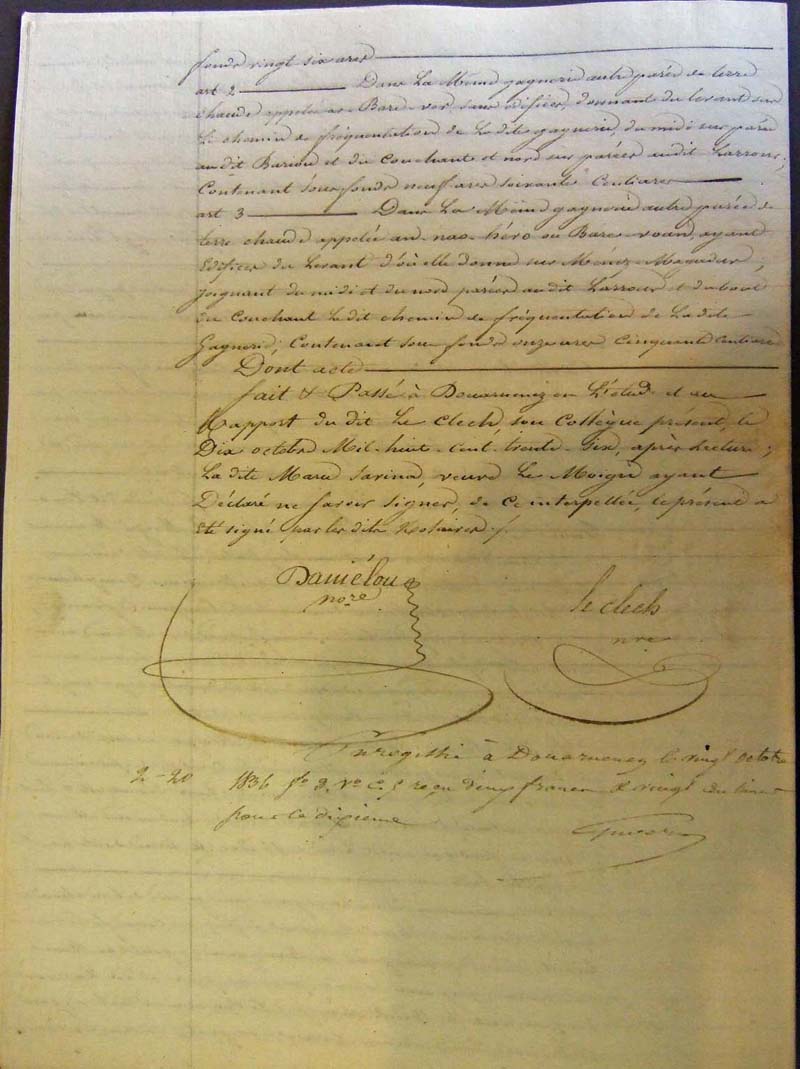 fonds vingt six ares
art 2 Dans La Même gagnerie autre parée de terre
chaude appelée ar Bare ver sans édifices, donnant du levant sur
Le chemin de fréquentation de La dite gagnerie, du midi sur parée
audit Bariou et du Couchant et nord sur parées audit Larrour;
Contenant sous fonds neuf ares soixante Centiares
art 3 Dans La Même gagnerie autre parée de
terre chaude appelée an ou Bare ayant
Edifices du Levant d'où elle donne sur Menez
joignant du midi et du nord parées audit Larrour et du bout
du Couchant Le dit chemin de fréquentation de La dite
Gagnerie; Contenant sous fonds onze ares Cinquante Centiares
Dont acte
fait & Passé à Douarnenez en L'étude et au
Rapport du dit Le Clech, son Collègue présent, le
Dix octobre Mil-huit-cent-trente-Six, après Lecture;
La dite Marie Savina, veuve Le Moigne ayant
Déclaré ne Savoir signer, de Ce interpellée, le présent a
été signé par les dits Notaires ./.
Daniélou
nore
le clech
nre
Enregistré à Douarnenez le vingt octobre
2-20 1836 fo vo c. 5 reçu deux francs & vingt centimes
pour le dixième